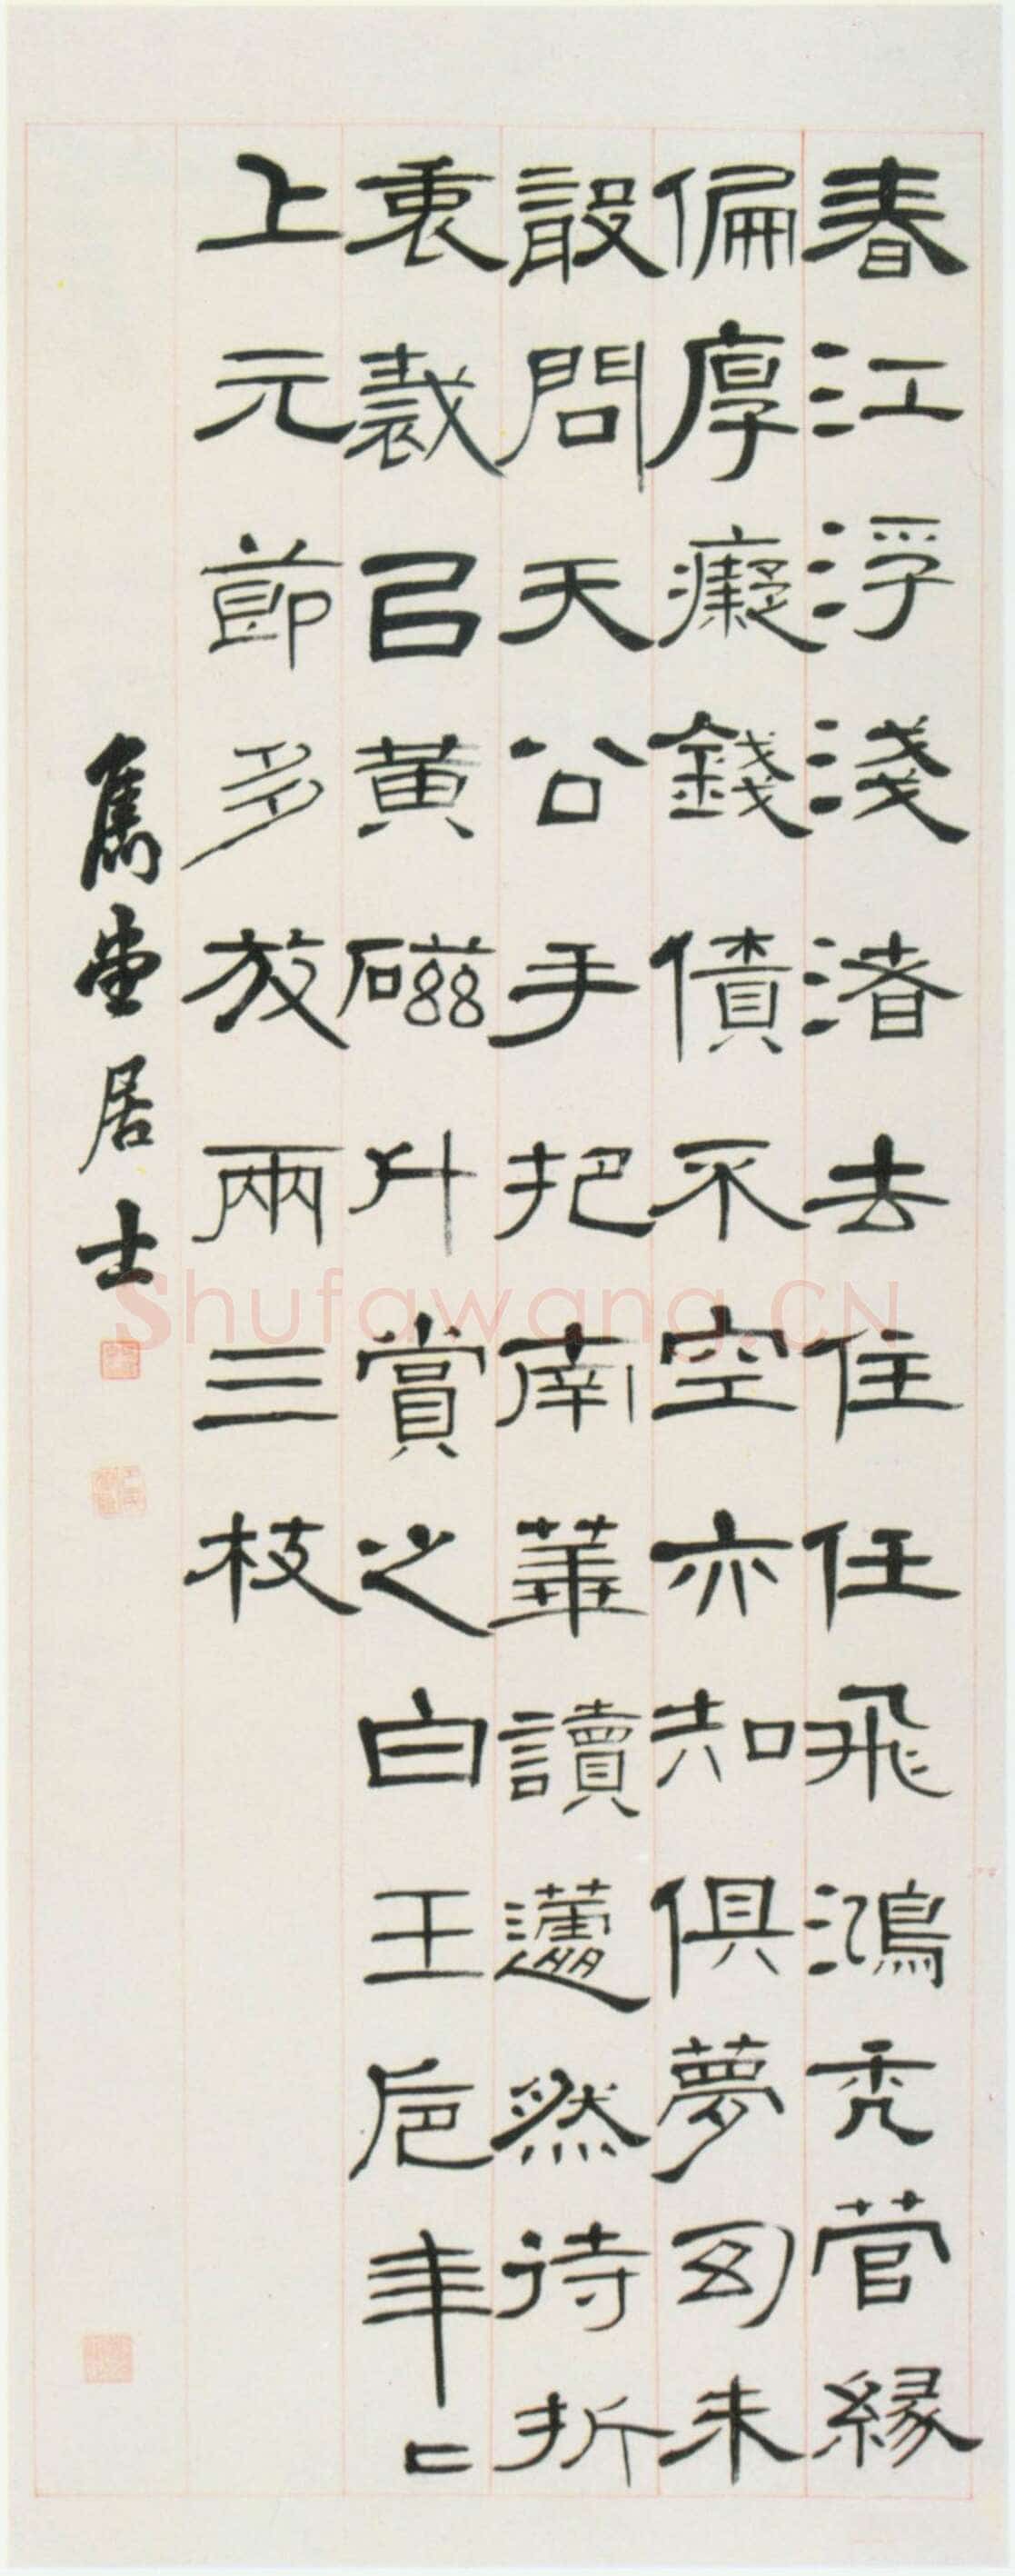 春江浮淺渚去住任飛鴻禿菅緣
偏厚癡錢債不空亦知俱夢幻未
敢問天公手把南華讀蘧然待折
衷裁㠯黃磁升賞之白玉卮年〻
上元節多放兩三枝
雋堂居士
Shufawang.CN